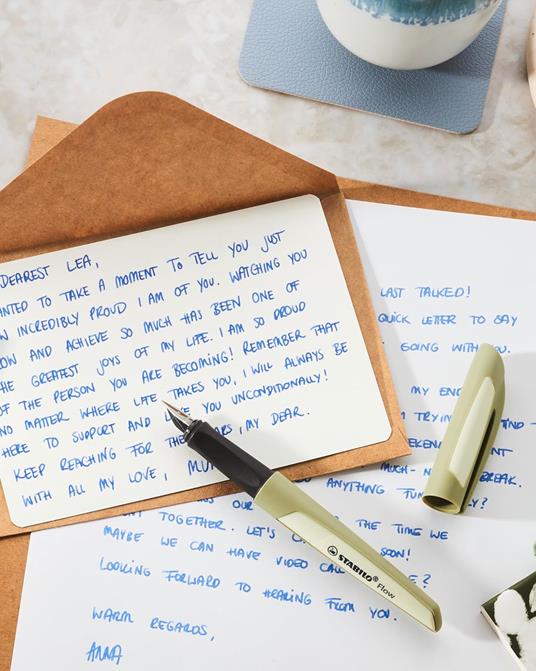 DEAREST LEA,
TO TAKE A MOMENT TO TELL YOU JUST
INCREDIBLY PROUD I AM OF YOU. WATCHING YOU
AND ACHIEVE SO MUCH HAS BEEN ONE OF
GREATEST JOYS OF MY LIFE. I AM SO PROUD
OF THE PERSON YOU ARE BECOMING! REMEMBER THAT
NO MATTER WHERE LIFE TAKES YOU, I WILL ALWAYS BE
HERE TO SUPPORT AND YOU UNCONDITIONALLY!
KEEP REACHING FOR THE , MY DEAR.
WITH ALL MY LOVE,
LAST TALKED!
QUICK LETTER TO SAY
GOING WITH YOU.
MY
MUCH-
BREAK.
OUR ANYTHING
TOGETHER. LET'S THE TIME WE
MAYBE WE CAN HAVE VIDEO SOON!
LOOKING FORWARD TO HEARING FROM YOU.
WARM REGARDS,
ANNA
STABILO® Flow